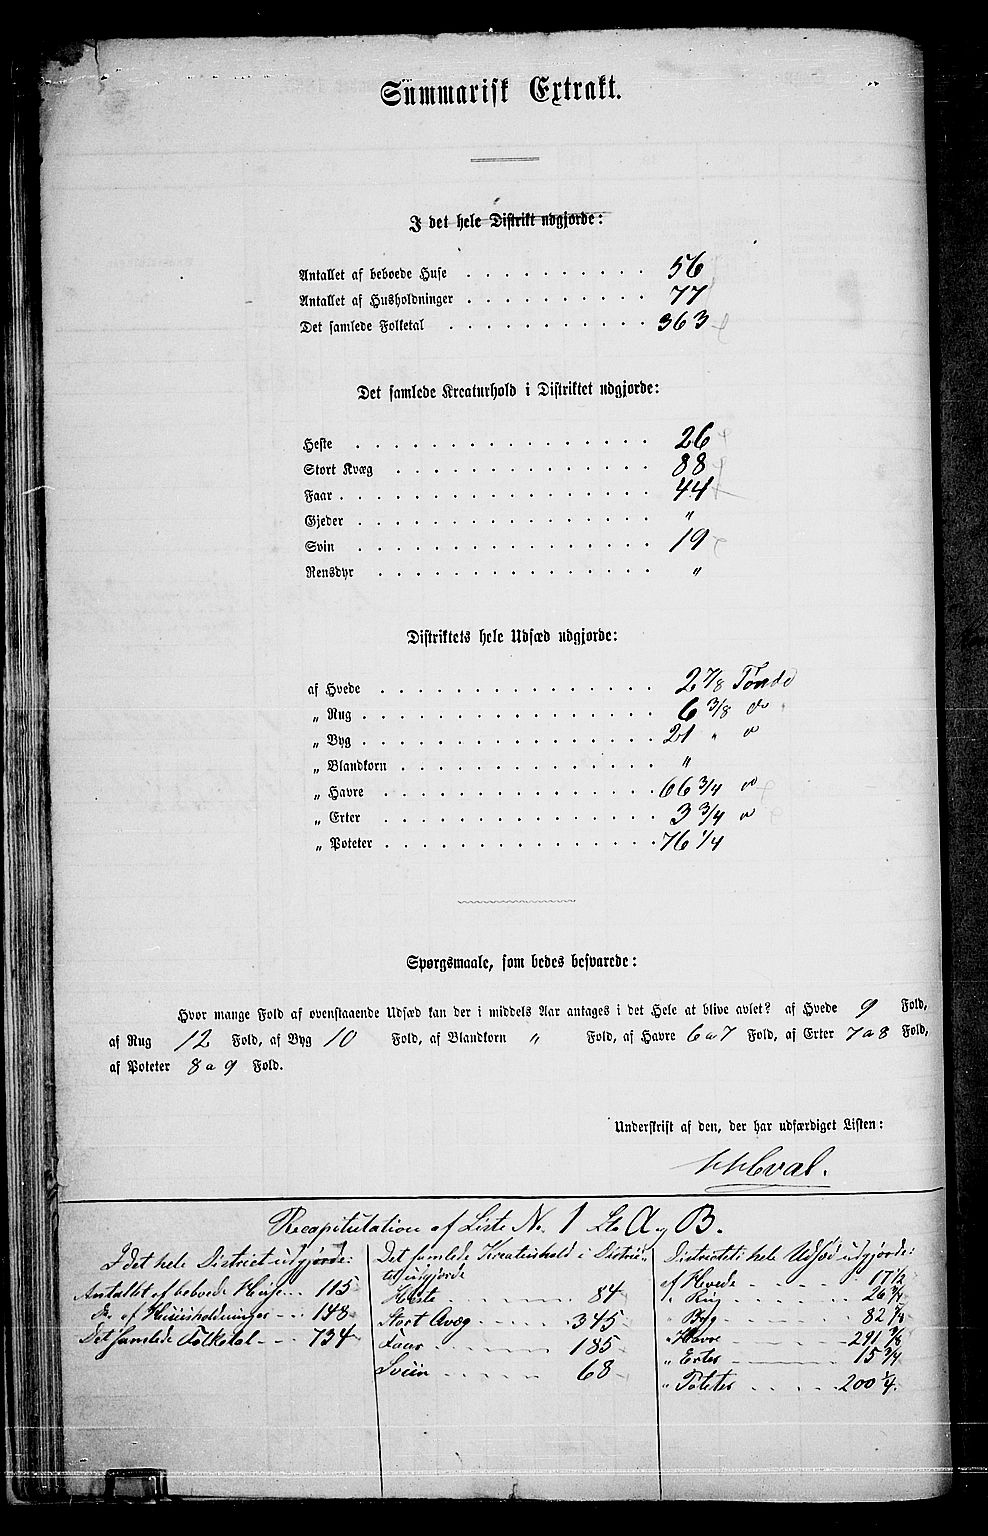 Summarisk Extrakt.
I det hele Distrikt udgjorde:
Antallet af beboede Huse . . . . . . . . . . 56
Antallet af Husholdninger . . . . . . . . . . 77
Det samlede Folketal . . . . . . . . . . . 363
Det samlede Kreaturhold i Distriktet udgjorde:
Heste . . . . . . . . . . . . . . . . 26
Stort Kvæg . . . . . . . . . . . . . . 88
Faar . . . . . . . . . . . . . . . . . 44
Gjeder . . . . . . . . . . . . . . . . "
Svin . . . . . . . . . . . . . . . . 19
Rensdyr . . . . . . . . . . . . . . . "
Distriktets hele Udsæd udgjorde:
af Hvede . . . . . . . . . . . . . . . 2 7/8 Tønde
" Rug . . . . . . . . . . . . . . . . 6 3/8 do
" Byg . . . . . . . . . . . . . . . . 21 " do
" Blandkorn . . . . . . . . . . . . . . "
" Havre . . . . . . . . . . . . . . . 66 3/4 do
" Erter . . . . . . . . . . . . . . . 3 3/4 do
" Poteter . . . . . . . . . . . . . . . 76 1/4
Spørgsmaale, som bedes besvarede:
Hvor mange Fold af ovenstaaende Udsæd kan der i middels Aar antages i det Hele at blive avlet? af Hvede 9 Fold,
af Rug 12 Fold, af Byg 10 Fold, af Blandkorn " Fold, af Havre 6 a 7 Fold, af Erter 7 a 8 Fold,
af Poteter 8 a 9 Fold.
Underskrift af den, der har udfærdiget Listen:
Recapitulation af Liste No. 1 Lt. A og B.
I det hele District udgjorde:
Antallet af beboede Huse . . . 115
Do. af Huusholdninger . . . 148
Det samlede Folketal . . . 734
Det samlede Kreaturhold i Distric-
tet udgjorde
Heste . . . . 84
Stort Qvæg . . . . 345
Faar . . . . 185
Sviin . . . . 68
Districtets hele Udsæd udgjorde:
af Hvede . . . . 17 1/2
" Rug . . . . 26 3/4
" Byg . . . . 82 7/8
" Havre . . . . 291 7/8
" Erter . . . . 15 3/4
" Poteter . . . . 200 1/4.